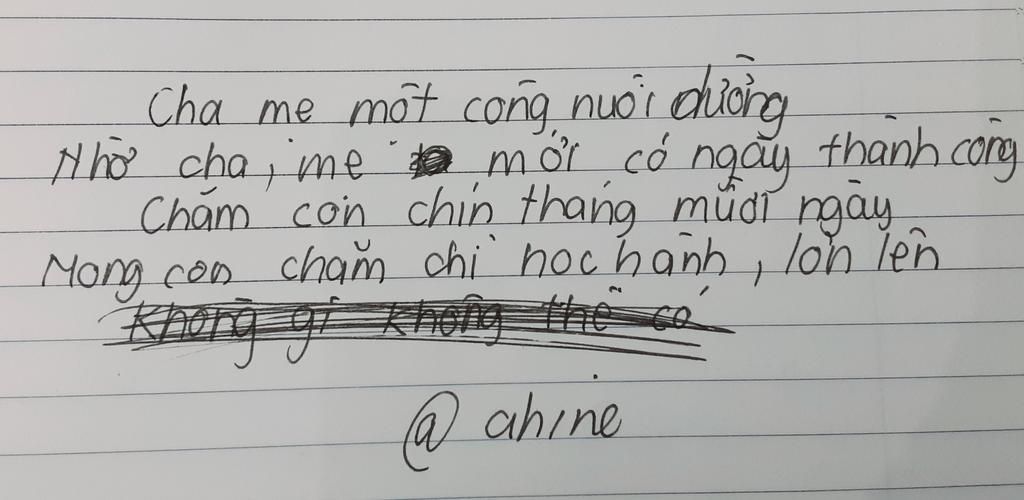 Cha mẹ một công nuôi dưỡng
Nhờ cha, mẹ mới có ngày thành công
Chăm con chín tháng mười ngày
Mong con chăm chỉ học hành, lớn lên
Không gì không thể có
@ ahine